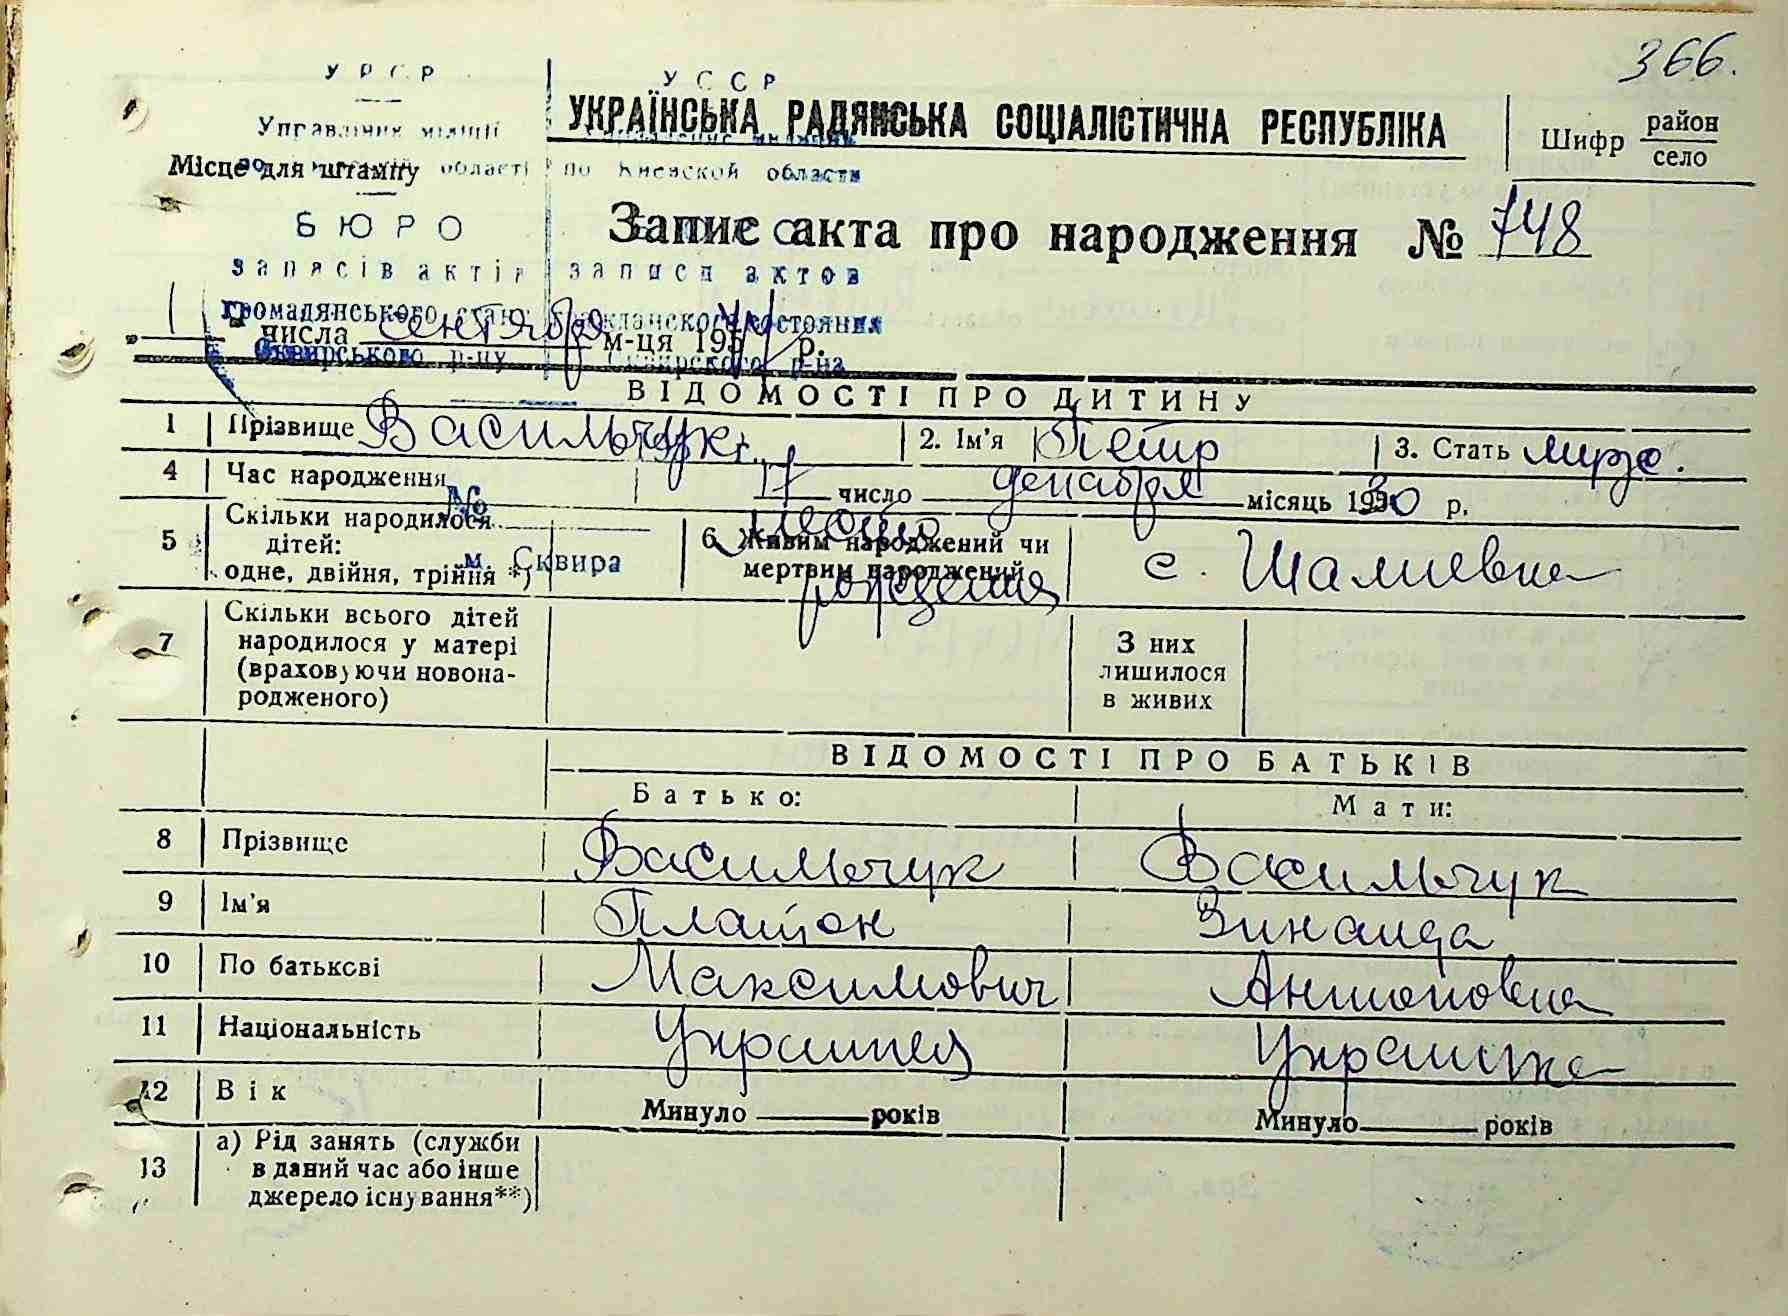 366.
УРСР
УССР
Управління міліції
УКРАЇНСЬКА РАДЯНСЬКА СОЦІАЛІСТИЧНА РЕСПУБЛІКА
Шифр район село
Місце для штампу
області
по Киевской области
БЮРО
Запис акта про народження № 748
записів актів
записи актов
громадянського стану
гражданского состояния
числа сентября м-ця 195 р.
Сквирського р-ну
Сквирского р-на
ВІДОМОСТІ ПРО ДИТИНУ
1 Прізвище Васильчук 2. Ім'я Петр 3. Стать муж.
4 Час народження 17 число декабря місяць 1930 р.
№
5 Скільки народилося дітей: одне, двійня, трійня *)
м. Сквира
6 Живим народжений чи мертвим народжений
место рождения
с. Шалиевка
7 Скільки всього дітей народилося у матері (враховуючи новонародженого)
З них лишилося в живих
ВІДОМОСТІ ПРО БАТЬКІВ
Батько: Мати:
8 Прізвище Васильчук Васильчук
9 Ім'я Платон Зинаида
10 По батькові Максимович Антоновна
11 Національність Украинец Украинка
12 Вік Минуло років Минуло років
13 а) Рід занять (служби
в даний час або інше
джерело існування**)